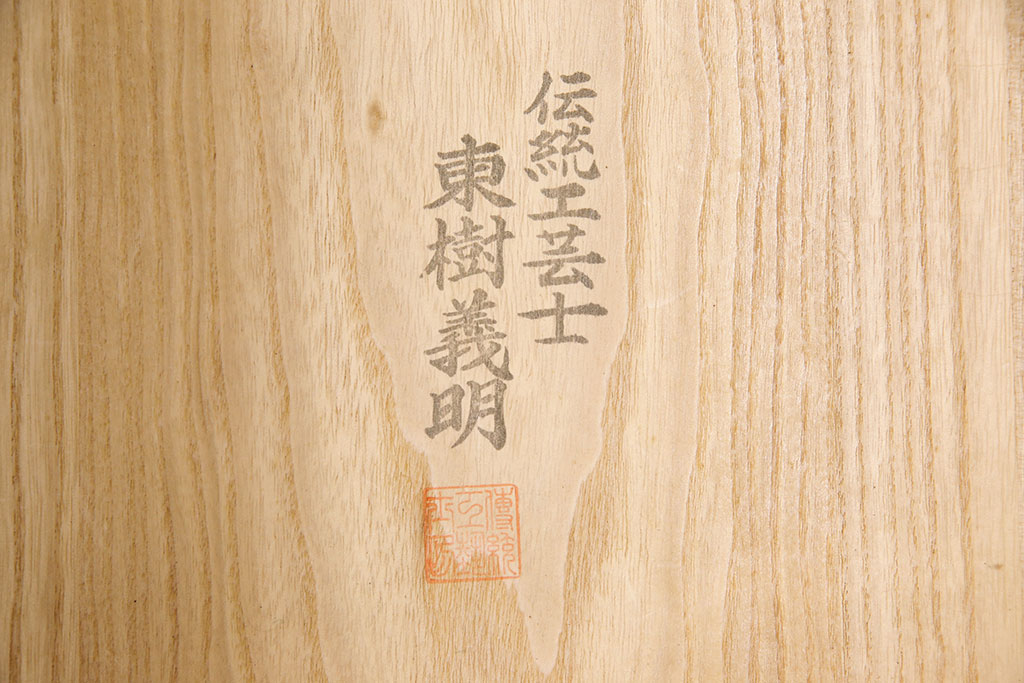 伝統工芸士
東樹義明
傳統